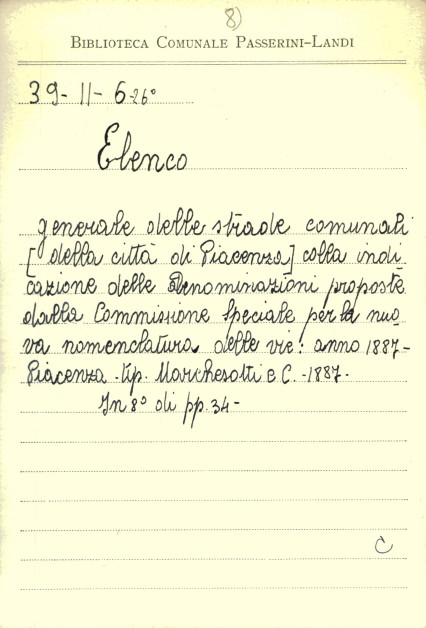 8)
BIBLIOTECA COMUNALE PASSERINI-LANDI
39- II- 6-26°
Elenco
generale delle strade comunali
[della città di Piacenza] colla indi
cazione delle denominazioni proposte
dalla Commissione speciale per la nuo
va nomenclatura delle vie: anno 1887-
Piacenza - tip. Marchesotti e C. - 1887.
In 8° di pp. 34-
C